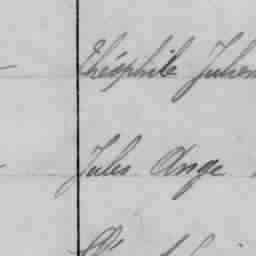 Théophile Julien
Jules Ange